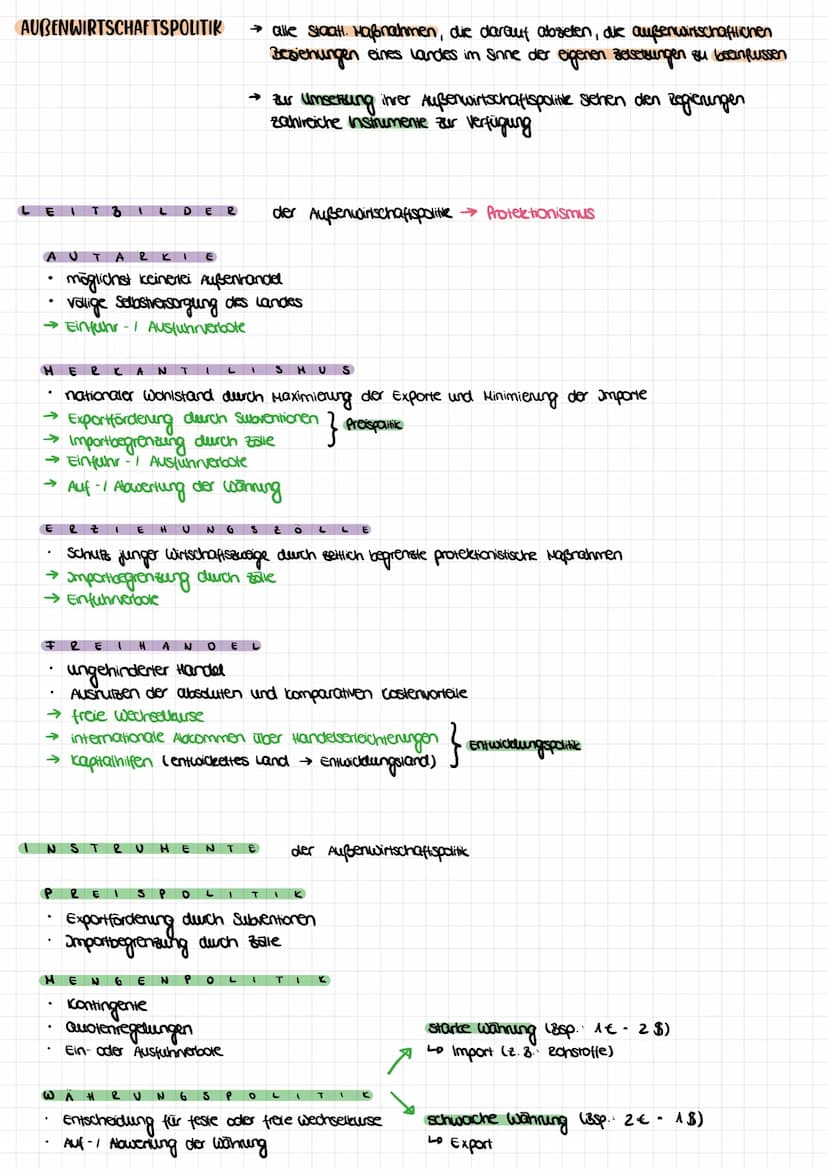 AUßENWIRTSCHAFTSPOLITIK → alle staatl. Maßnahmen, die darauf abzielen, die außenwirtschaftlichen
Beziehungen eines Landes im Sinne der eigenen Zielsetzungen zu beeinflussen
→ zur Umsetzung ihrer Außenwirtschaftspolitik stehen den Regierungen
zahlreiche Instrumente zur Verfügung
LEITBILDER der Außenwirtschaftspolitik → Protektionismus
AUTARKIE
· möglichst keinerlei Außenhandel
· völlige Selbstversorgung des Landes
→ Einfuhr-/ Ausfuhrverbote
MERKANTILISMUS
· nationaler Wohlstand durch Maximierung der Exporte und Minimierung der Importe
→ Exportförderung durch Subventionen } Preispolitik
→ Importbegrenzung durch Zölle
→ Einfuhr-/ Ausfuhrverbote
→ Auf-/ Abwertung der Währung
ERZIEHUNGSZÖLLE
· Schutz junger Wirtschaftszweige durch zeitlich begrenzte protektionistische Maßnahmen
→ Importbegrenzung durch Zölle
→ Einfuhrverbote
FREIHANDEL
· ungehinderter Handel
· Ausnutzen der absoluten und komparativen Kostenvorteile
→ freie Wechselkurse
→ internationale Abkommen über Handelserleichterungen } Entwicklungspolitik
→ Kapitalhilfen (entwickeltes Land → Entwicklungsland)
INSTRUMENTE der Außenwirtschaftspolitik
PREISPOLITIK
· Exportförderung durch Subventionen
· Importbegrenzung durch Zölle
MENGENPOLITIK
· Kontingente
· Quotenregelungen
· Ein- oder Ausfuhrverbote
WÄHRUNGSPOLITIK
· Entscheidung für feste oder freie Wechselkurse
· Auf-/ Abwertung der Währung
starke Währung (Bsp.: 1€ - 2$)
↳ Import (z.B.: Rohstoffe)
schwache Währung (Bsp.: 2€ - 1$)
↳ Export